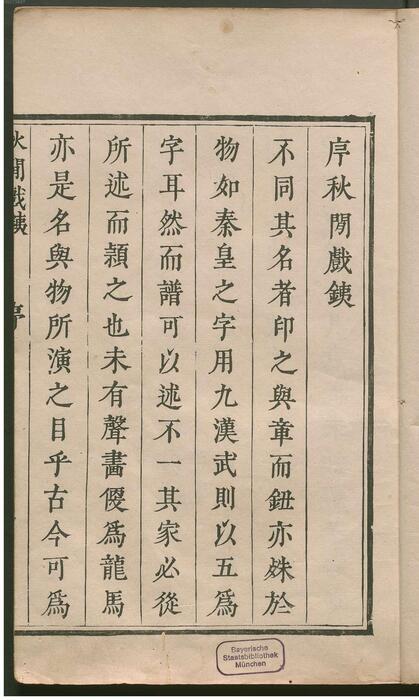 序秋閒戲銕
不同其名著印之與章而鈕亦殊於
物如秦皇之字用九漢武則以五爲
字耳然而譜可以述不一其家必從
所述而纇之也未有聲畵偃爲龍馬
亦是名與物所演之目乎古今可爲
秋閒戲銕 序
Bayerische
Staatsbibliothek
München